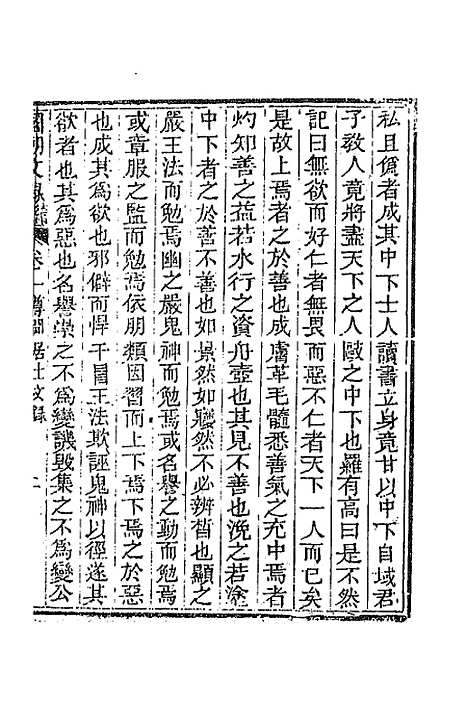 私且僞者成其中下士人讀書立身竟甘以中下自域君
子教人竟將盡天下之人敺之中下也羅有高曰是不然
記曰無欲而好仁者無畏而惡不仁者天下一人而已矣
是故上焉者之於善也成膚革毛髓悉善氣之充中焉者
灼知善之益若水行之資舟壺也其見不善也浼之若塗
中下者之於善不善也如景然如聽然不必辨晳也顯之
嚴王法而勉焉幽之嚴鬼神而勉焉或名譽之動而勉焉
或章服之監而勉焉依朋類因習而上下焉下焉之於惡
也成其爲欲也邪僻而悍干冒王法欺誣鬼神以徑遂其
欲者也其爲惡也名譽榮之不爲變譏毀集之不爲變公
國朝文錄 卷一 尊聞居士文錄